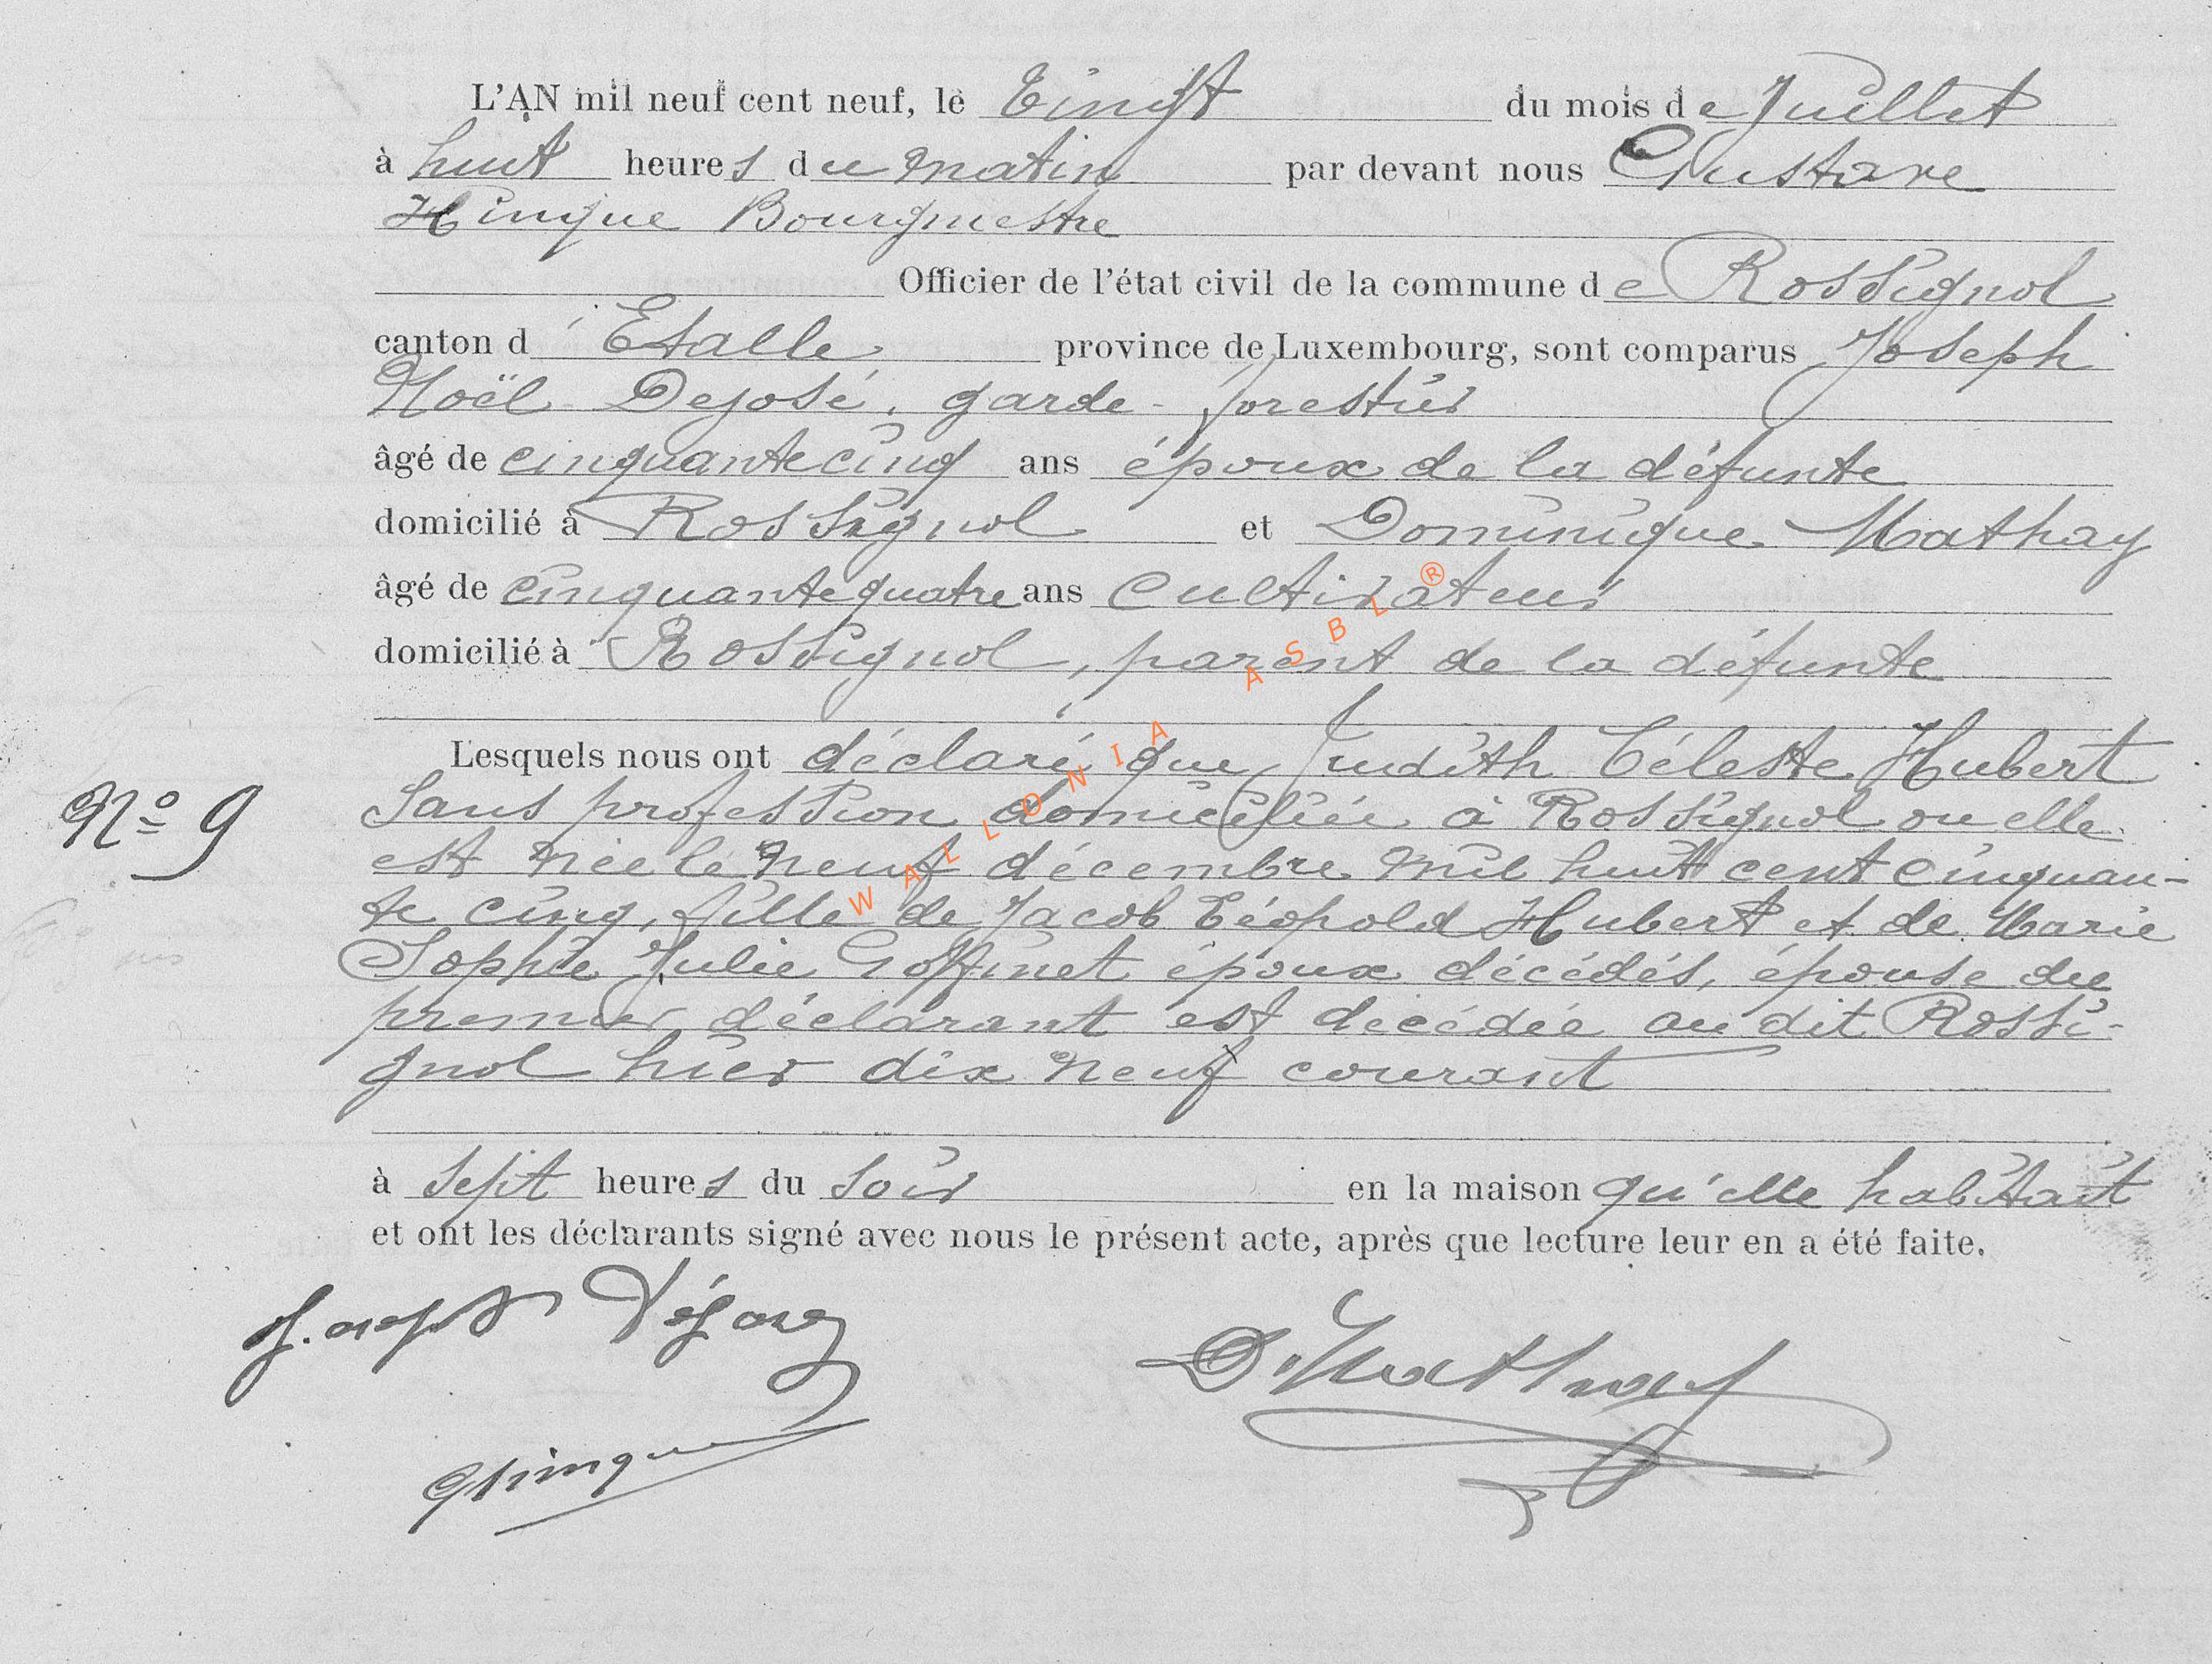 L'AN mil neuf cent neuf, le Vingt du mois de Juillet
à huit heures du matin par devant nous Gustave
Hinque Bourgmestre
Officier de l'état civil de la commune de Rossignol
canton d'Etalle province de Luxembourg, sont comparus Joseph
Noël Dejosé, garde-forestier
âgé de cinquante cinq ans époux de la défunte
domicilié à Rossignol et Dominique Mathay
âgé de cinquante quatre ans cultivateur
domicilié à Rossignol, parent de la défunte
Lesquels nous ont déclaré que Judith Céleste Hubert
sans profession domiciliée à Rossignol ou elle
N° 9
est née le neuf décembre mil huit cent cinquan-
te cinq, fille de Jacob Léopold Hubert et de Marie
Sophie Julie Goffinet époux décédés, épouse du
premier déclarant est décédée au dit Rossi-
gnol hier dix neuf courant
à sept heures du soir en la maison qu'elle habitait
et ont les déclarants signé avec nous le présent acte, après que lecture leur en a été faite.
Joseph Déjosez
D. Mathay
GHinque
WALLONIA ASBL®